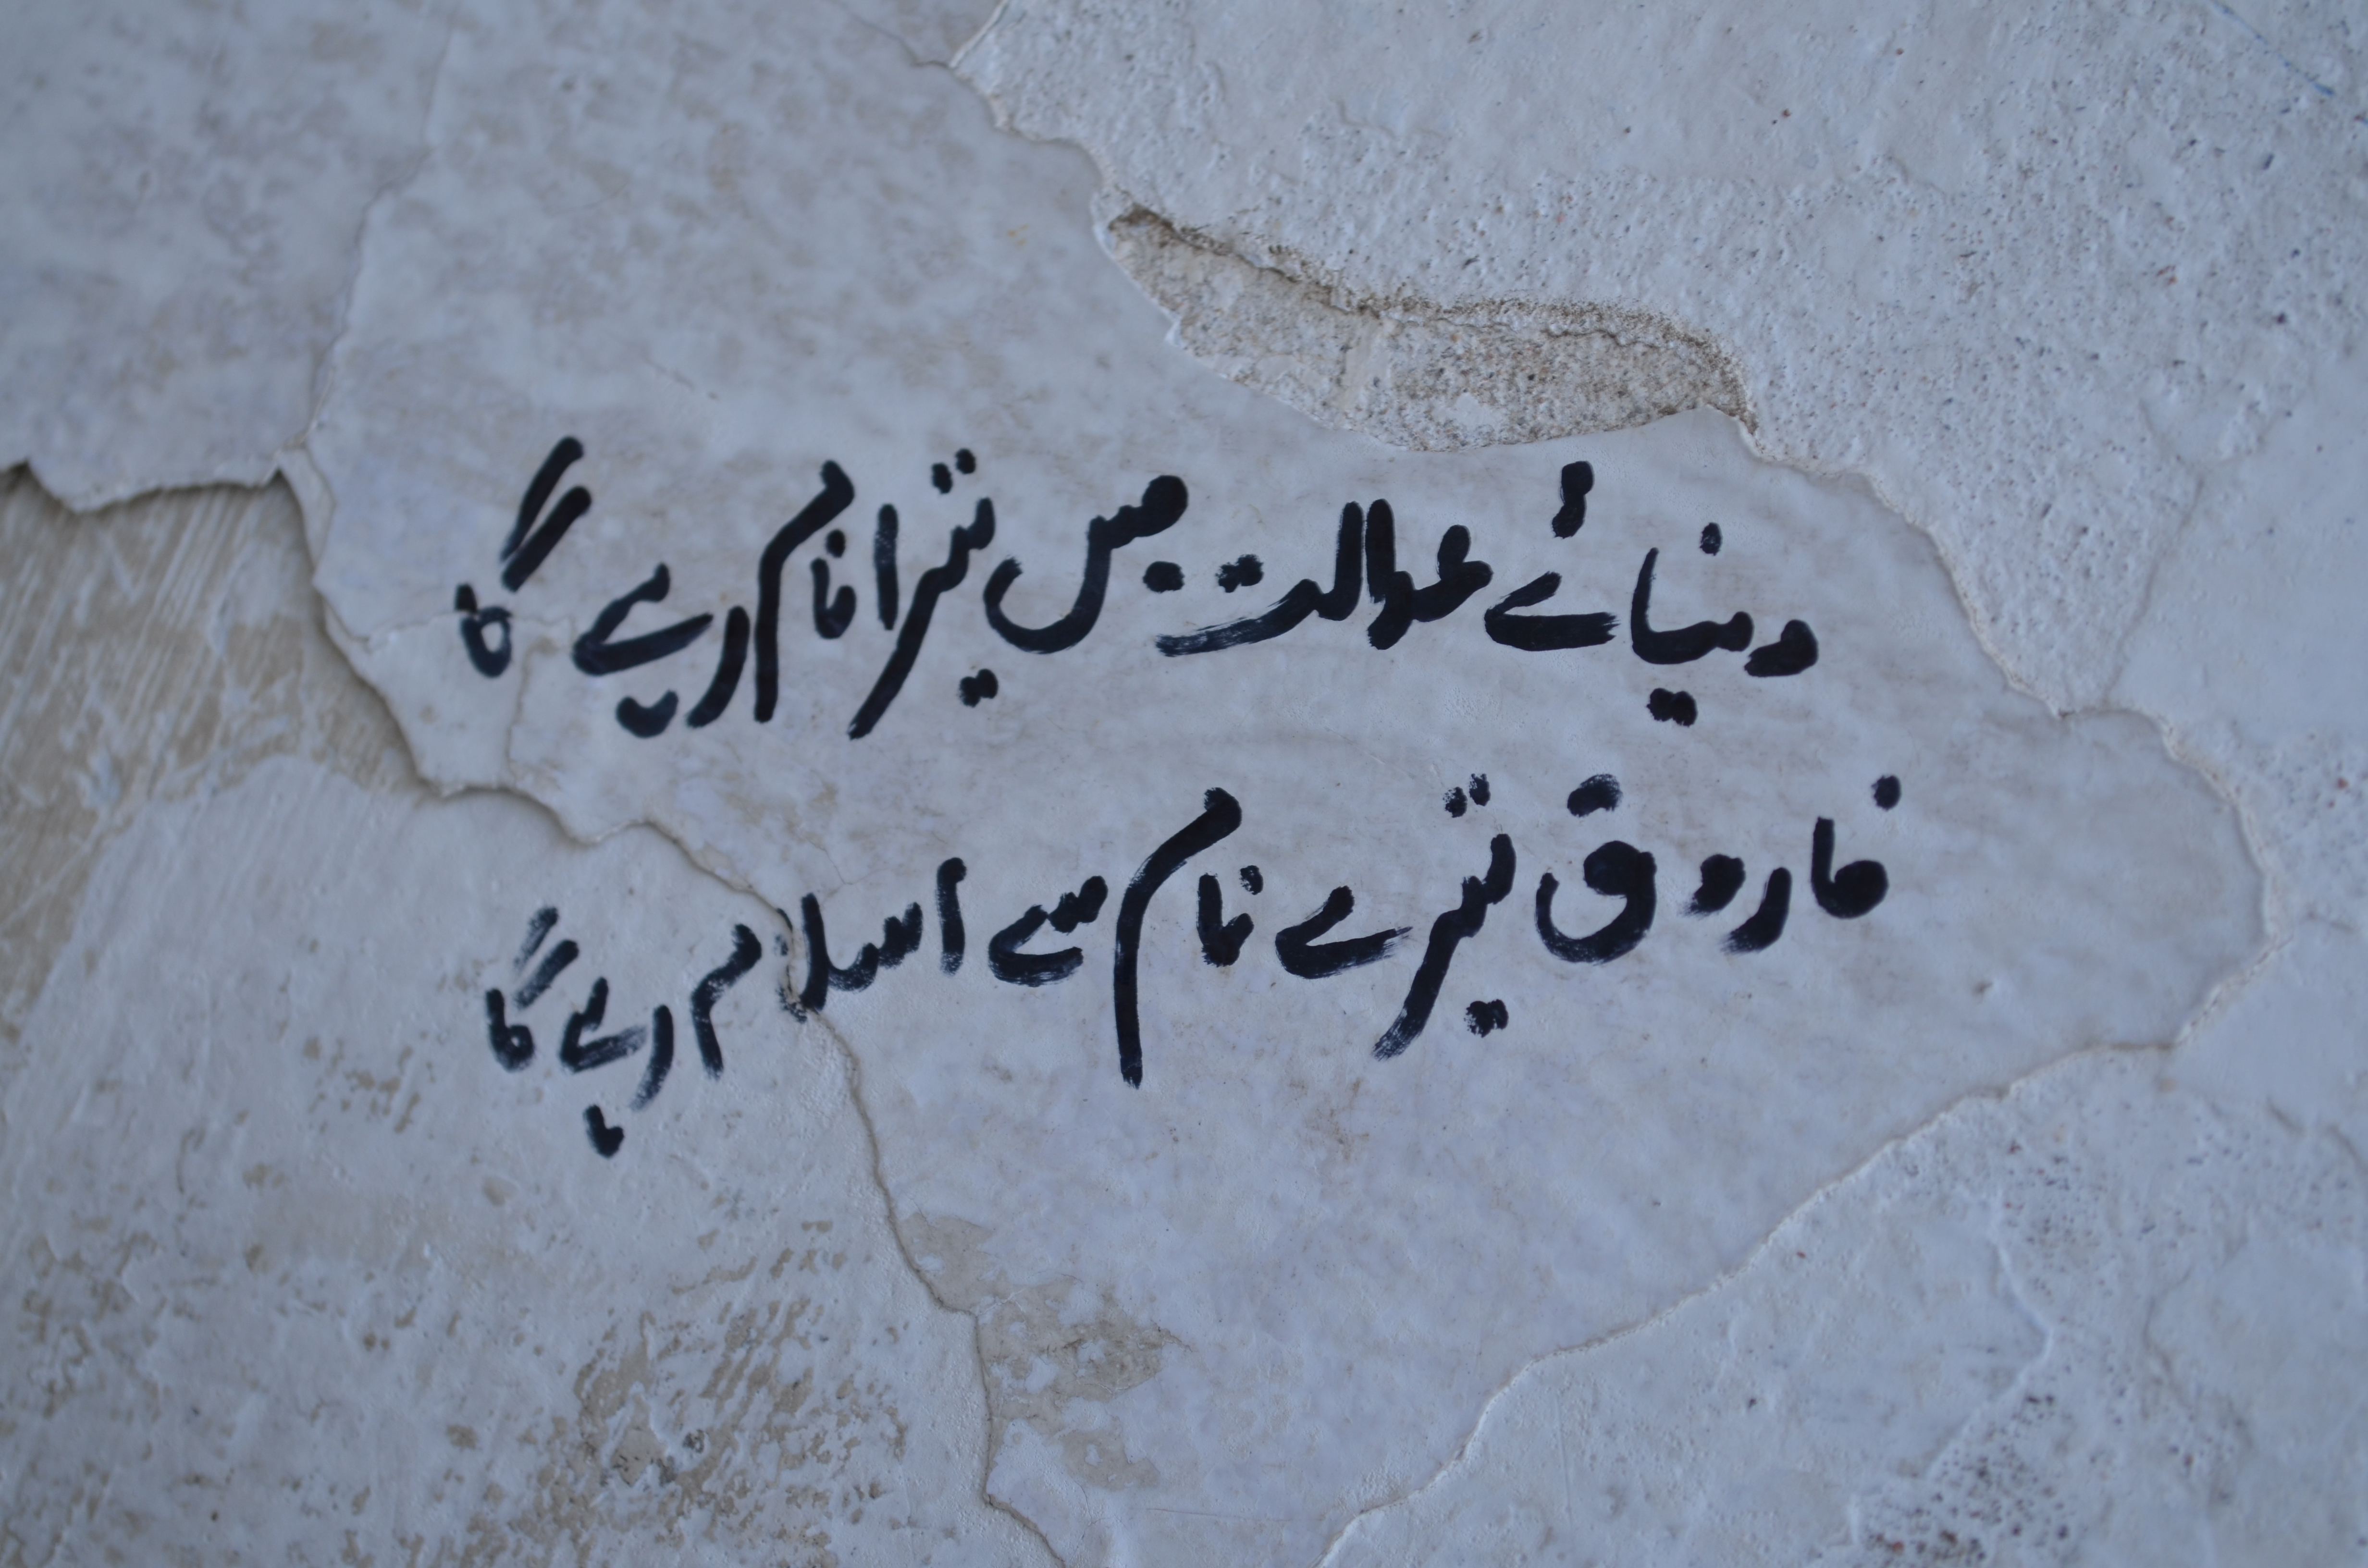 دنیائے عدالت میں تیرا نام رہے گا
فاروق تیرے نام سے اسلام رہے گا